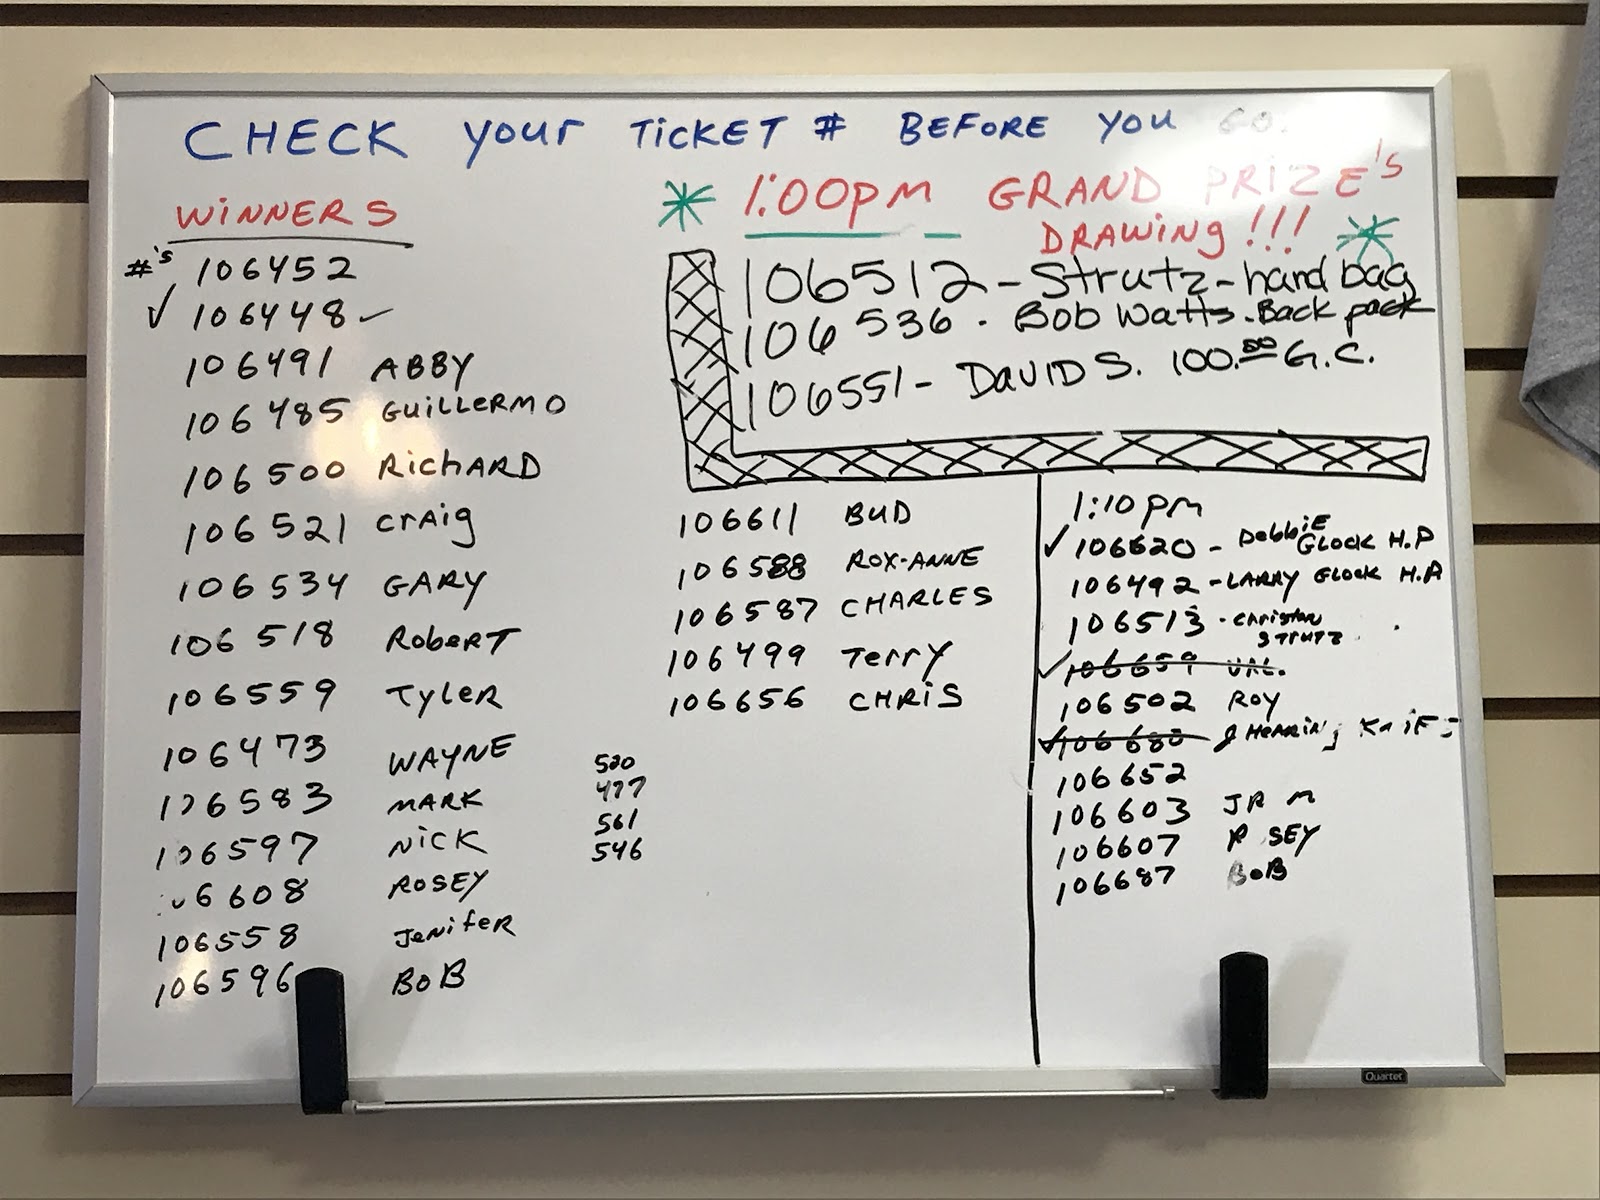 CHECK your TiCKET # BEFORE you GO.
WiNNERS
#'s 106452
✓ 106448 –
106491 ABBY
106485 GuiLLERMO
106500 RichARD
106521 CrAig
106534 GARY
106518 RobERT
106559 TyLER
106473 WAYNE
106583 MARK
106597 NiCK
06608 ROSEY
106558 JeNifeR
106596 BoB
520
477
561
546
* 1:00pm GRAND PRIZE's
DRAWiNg!!! *
106512 – Strutz – hand bag
106536 - Bob Watts - Back pack
106551 – DaviD S. 100.00 G.C.
106611 BUD
106588 ROX-ANNE
106587 CHARLES
106499 TerrY
106656 CHRiS
1:10 pm
✓ 106620 - DebbiE
GLock H.P
106492 - LARRY GLOCK H.P
106513 - Christan
STRUTZ
✓ 106659
106502 ROY
✓ 106680
106652
106603 JR M
106607 R SEY
106687 BoB
Quartet